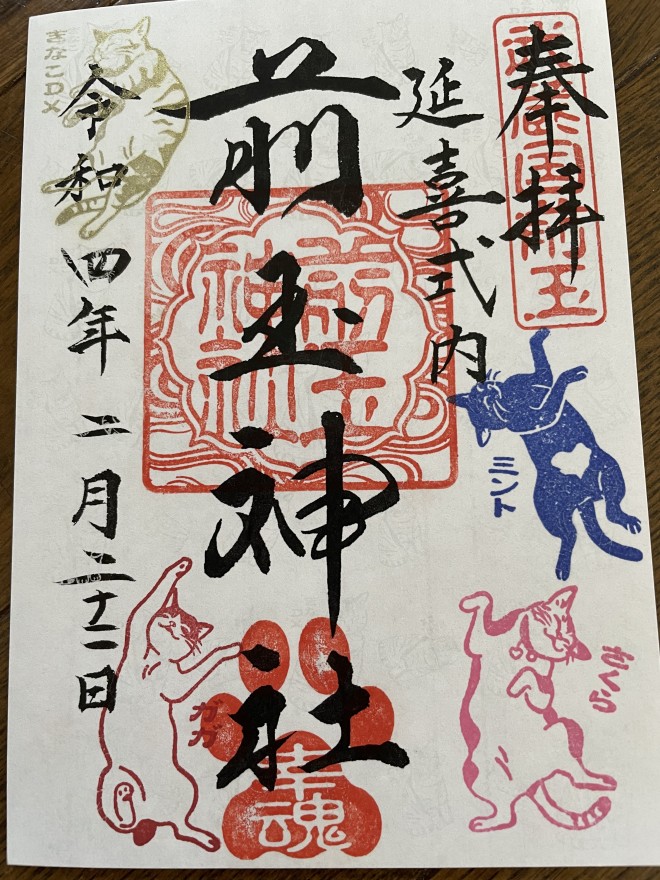 奉拝
武蔵国前玉
延喜式内
前玉神社
前玉
神社
令和四年二月二十二日
きなこDX
ミント
さくら
ガガ
幸魂